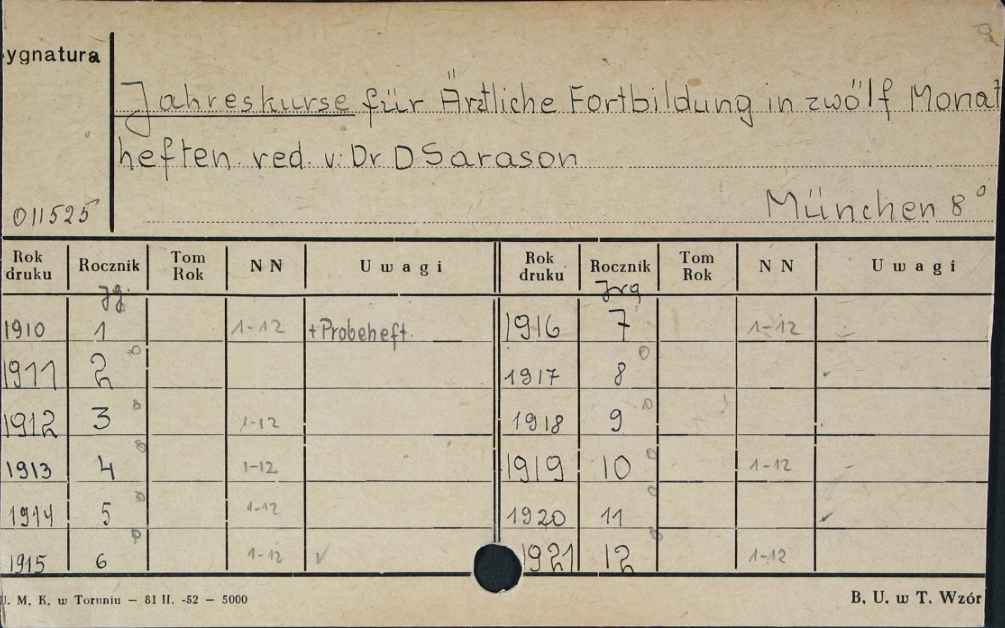 ygnatura
Jahreskurse für Ärztliche Fortbildung in zwölf Monat
heften red. v. Dr D Sarason
011525 München 8°
Rok druku Rocznik Tom Rok N N Uwagi Rok druku Rocznik Tom Rok N N Uwagi
Jg. Jrg
1910 1 1-12 + Probeheft. 1916 7 1-12
1911 2 1917 8
1912 3 1-12 1918 9
1913 4 1-12 1919 10 1-12
1914 5 1-12 1920 11
1915 6 1-12 1921 12 1-12
U. M. K. w Toruniu — 81 II. -52 — 5000 B. U. w T. Wzór